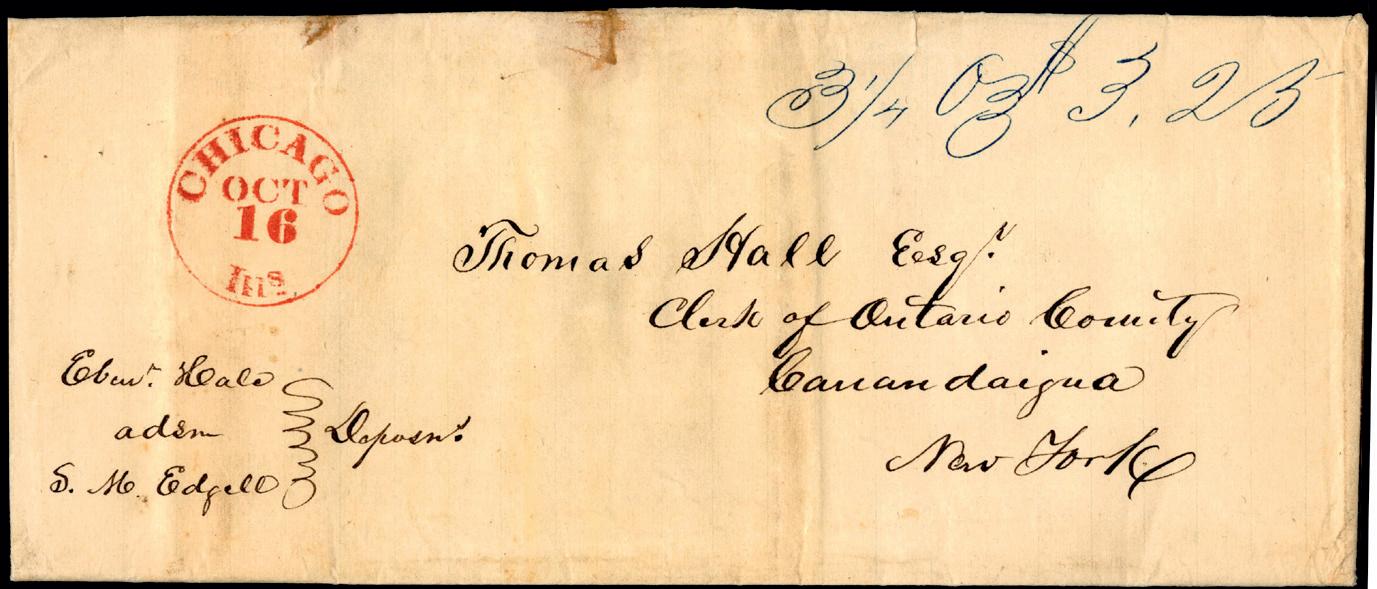 3 1/4 Oz $ 3,25
CHICAGO
OCT
16
Ills.
Thomas Hall Esqr.
Clerk of Ontario County
Canandaigua
New York
Ebenr. Hale
adsm Deposns.
S. M. Edgell